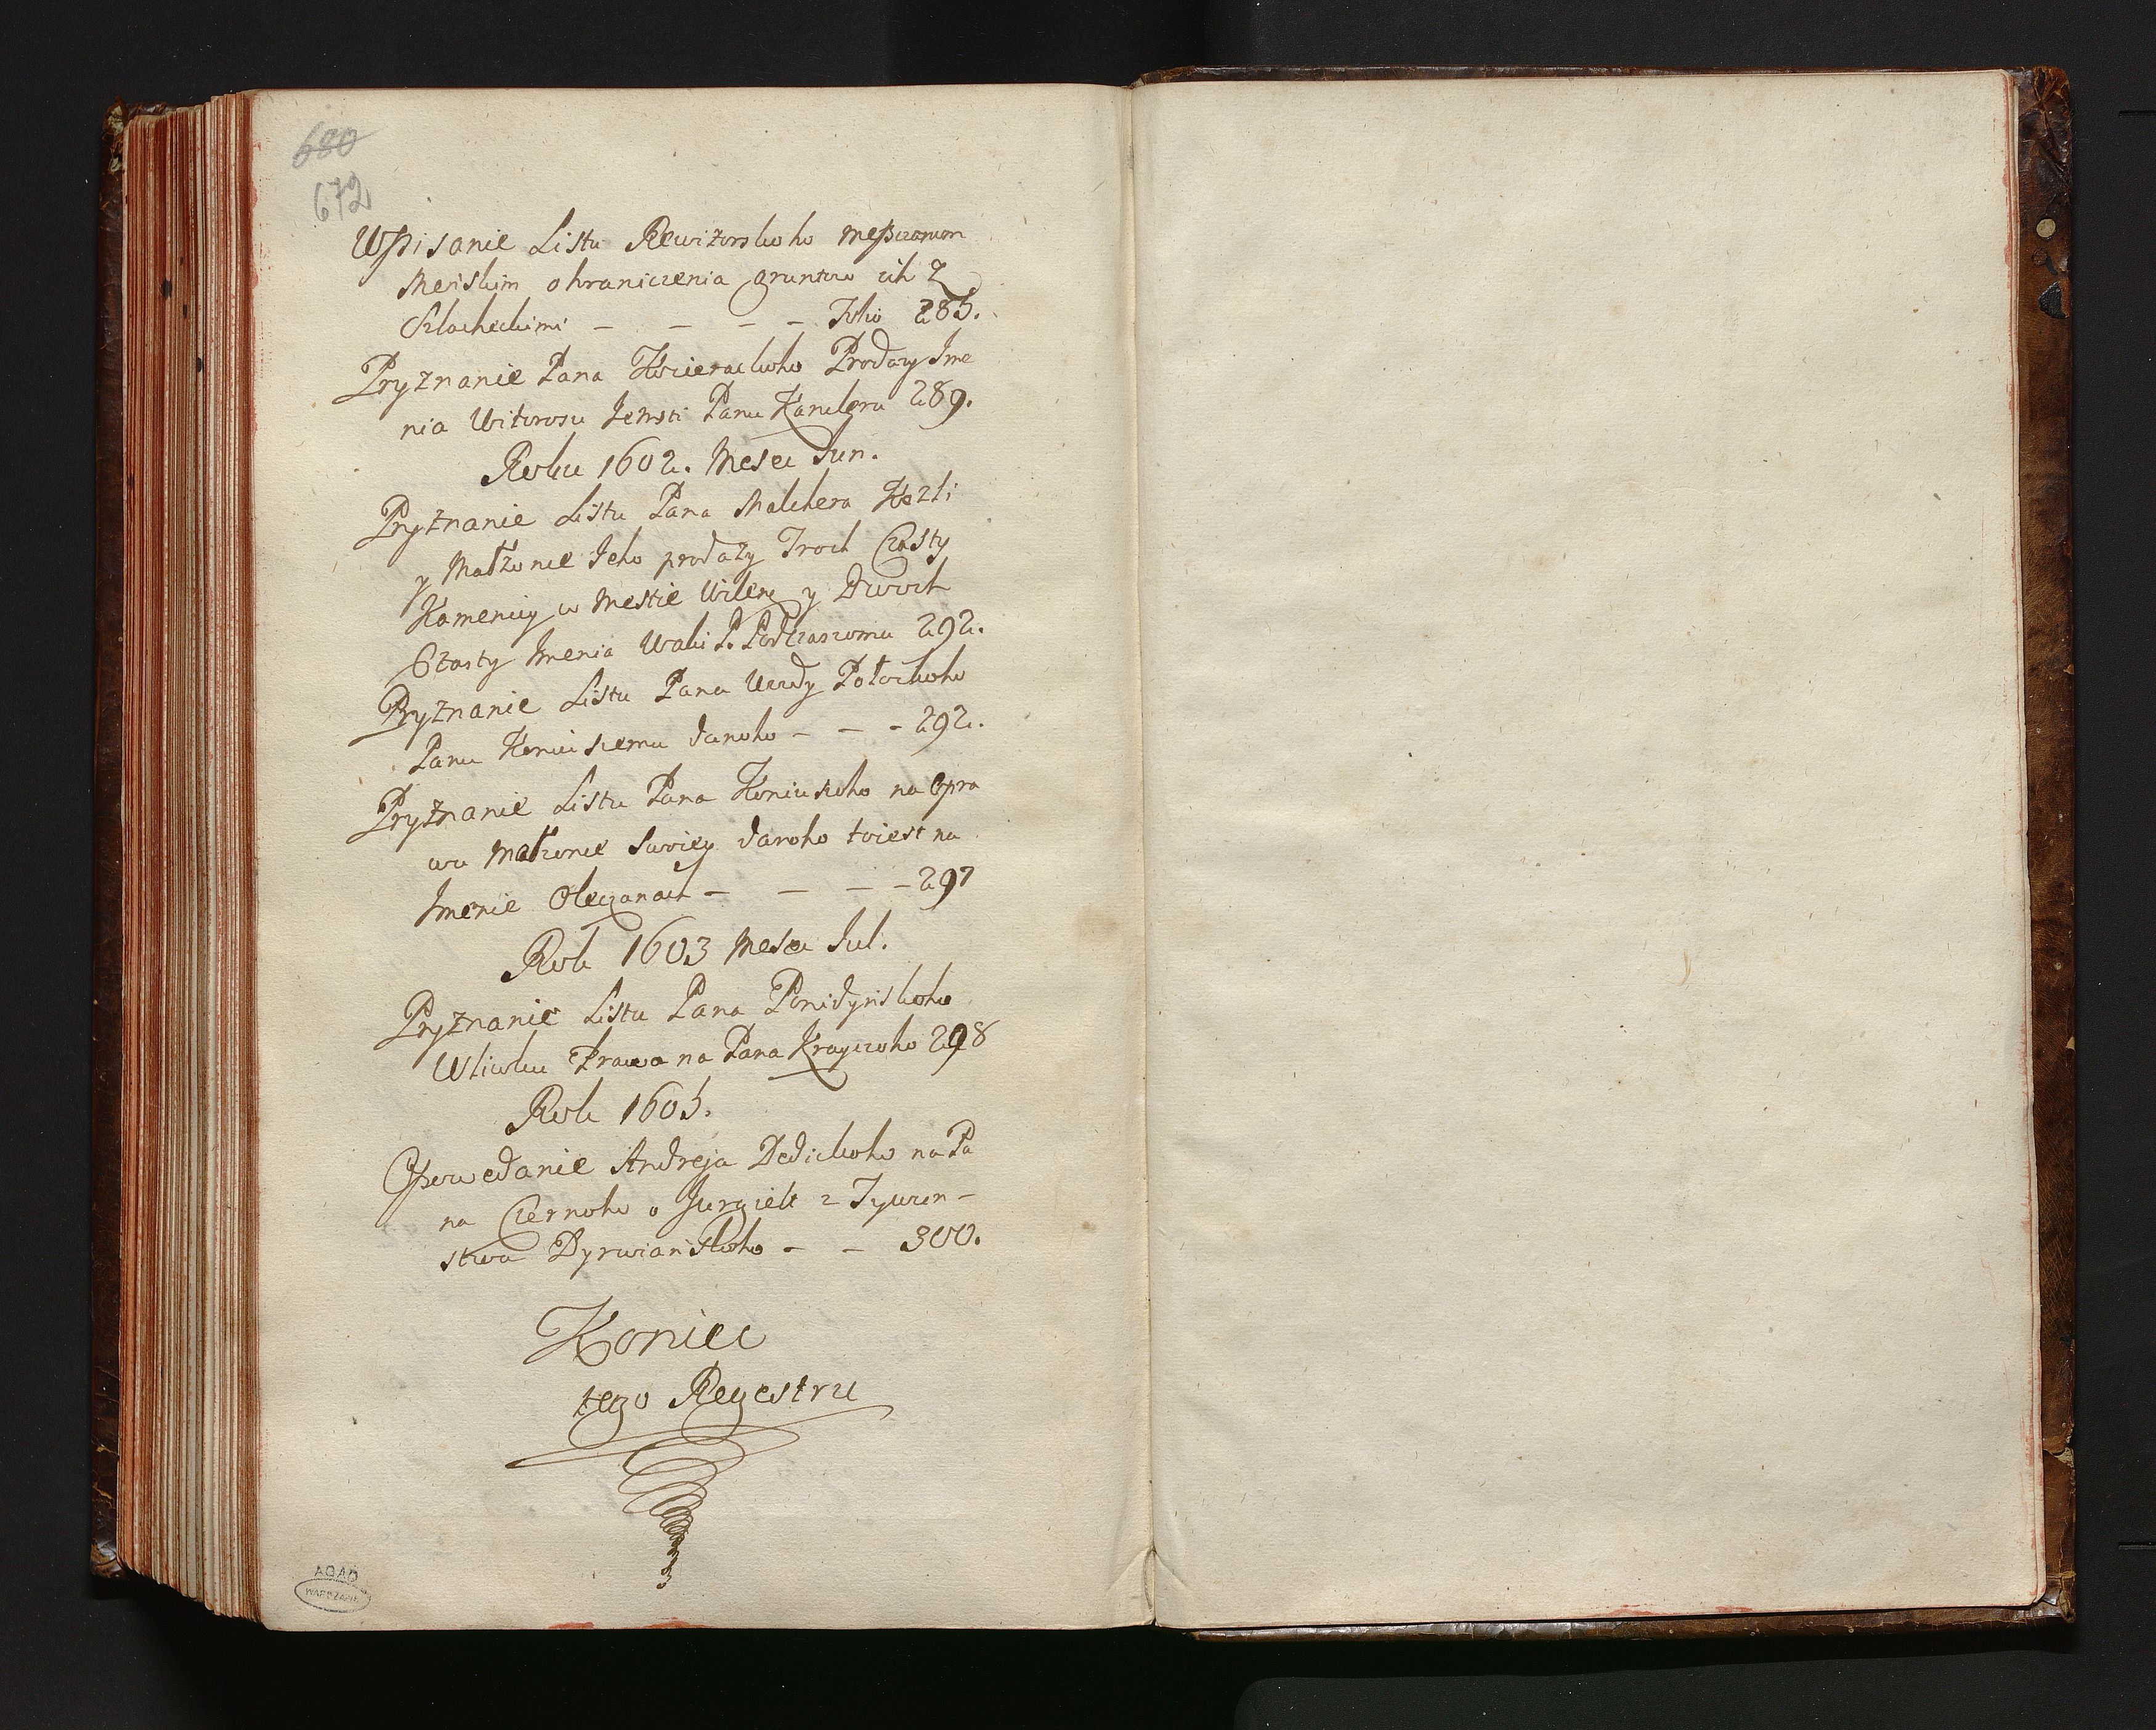 680
672
Wpisanie Listu Rewizorskoho mesczanom
Meiskim ohraniczenia gruntow ich z
Szlacheckimi - - - - Folio 285.
Pryznanie Pana Prodazy Ime
nia Witorosu Jemsti Panu Kancleru 289.
Roku 1602. Mesca Jun.
Pryznanie Listu Pana Malchera
y Małzonce Jeho prodazy Troch Czasty
Kamenicy w Mestie Wilen y Dwoch
Czasty Imenia Waki P. Podczaszomu 292.
Pryznanie Listu Pana Połockoho
Panu Koniuszemu danoho - - - 292.
Pryznanie Listu Pana Koniuszoho na Opra
wu Małzonce Swoiey danoho toiest na
Imenie Oleczanach - - - - 297
Rok 1603 Mesca Jul.
Pryznanie Listu Pana
Wliwku Prawa na Pana Krayczoho 298
Rok 1605.
Opowedanie Andreja Dedickoho na Pa
na Czernoho o Jurgielt z Tywon-
stwa Dyrwianskoho - - 300.
Koniec
tego Regestru
AGAD
WARSZAWA